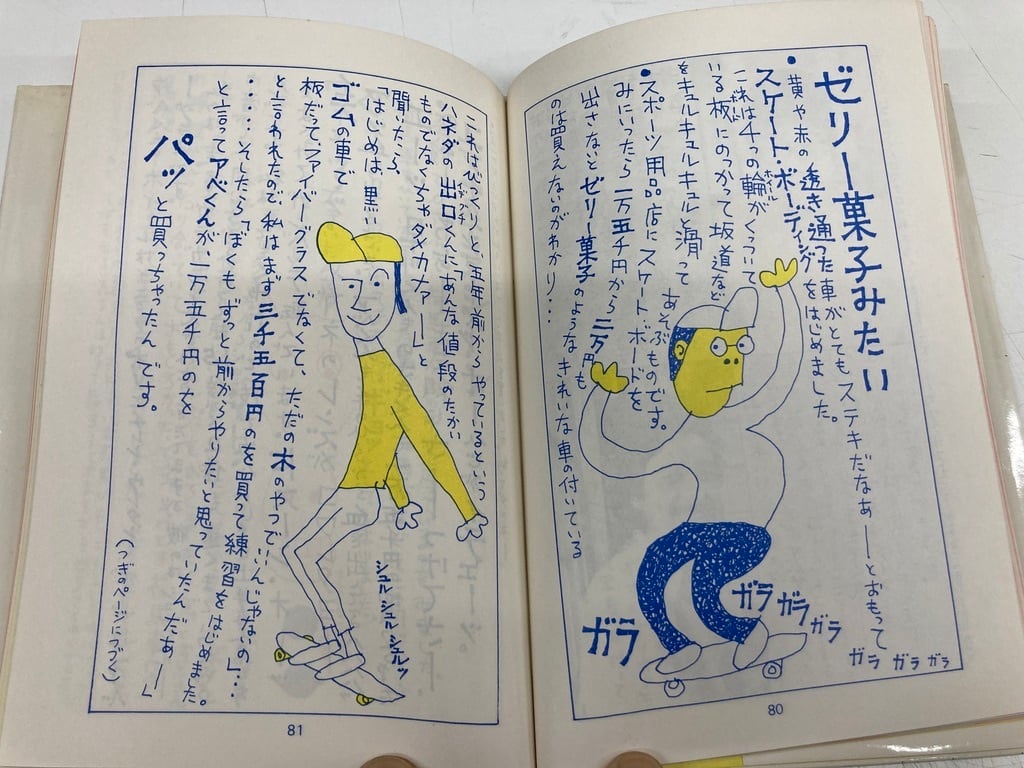 ゼリー菓子みたい
・黄や赤の透き通った車がとてもステキだなぁーとおもって
スケート・ボーディングをはじめました。
これは4つの輪がくっついて
ホイル
いる板にのっかって坂道など
をキュルキュルキュルと滑って
あそぶものです。
・スポーツ用品店にスケートボードを
みにいったら一万五千円から二万円も
出さないとゼリー菓子のようなきれいな車の付いている
のは買えないのがわかり…
ガラ
ガラ
ガラ
ガラ
ガラ
ガラ
ガラ
80
これはびっくりと、五年前からやっているという
ハネダの出口くんに「あんな値段のたかい
ものでなくちゃダメカナァー」と
聞いたら、
「はじめは黒い
ゴムの車で
板だってファイバーグラスでなくて、ただの木のやつでいいんじゃないの」…
と言われたので、私はまず三千五百円のを買って練習をはじめました。
・・・・そしたら「ぼくもずっと前からやりたいと思っていたんだぁー」
と言ってアベくんが、一万五千円のを
パッと買っちゃったんです。
シュルシュルシュルッ
(つぎのページにつづく)
81